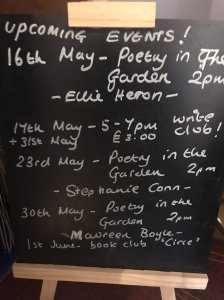 UPCOMING EVENTS!
16th May - Poetry in The
Garden 2pm
- Ellie Heron -
17th May - 5 - 7pm write
+ 31st May £3.00 club!
23rd May - Poetry in the
Garden 2pm
- Stephanie Conn -
30th May - Poetry in the
Garden 2pm
- Maureen Boyle -
1st June - book club 'Circe'